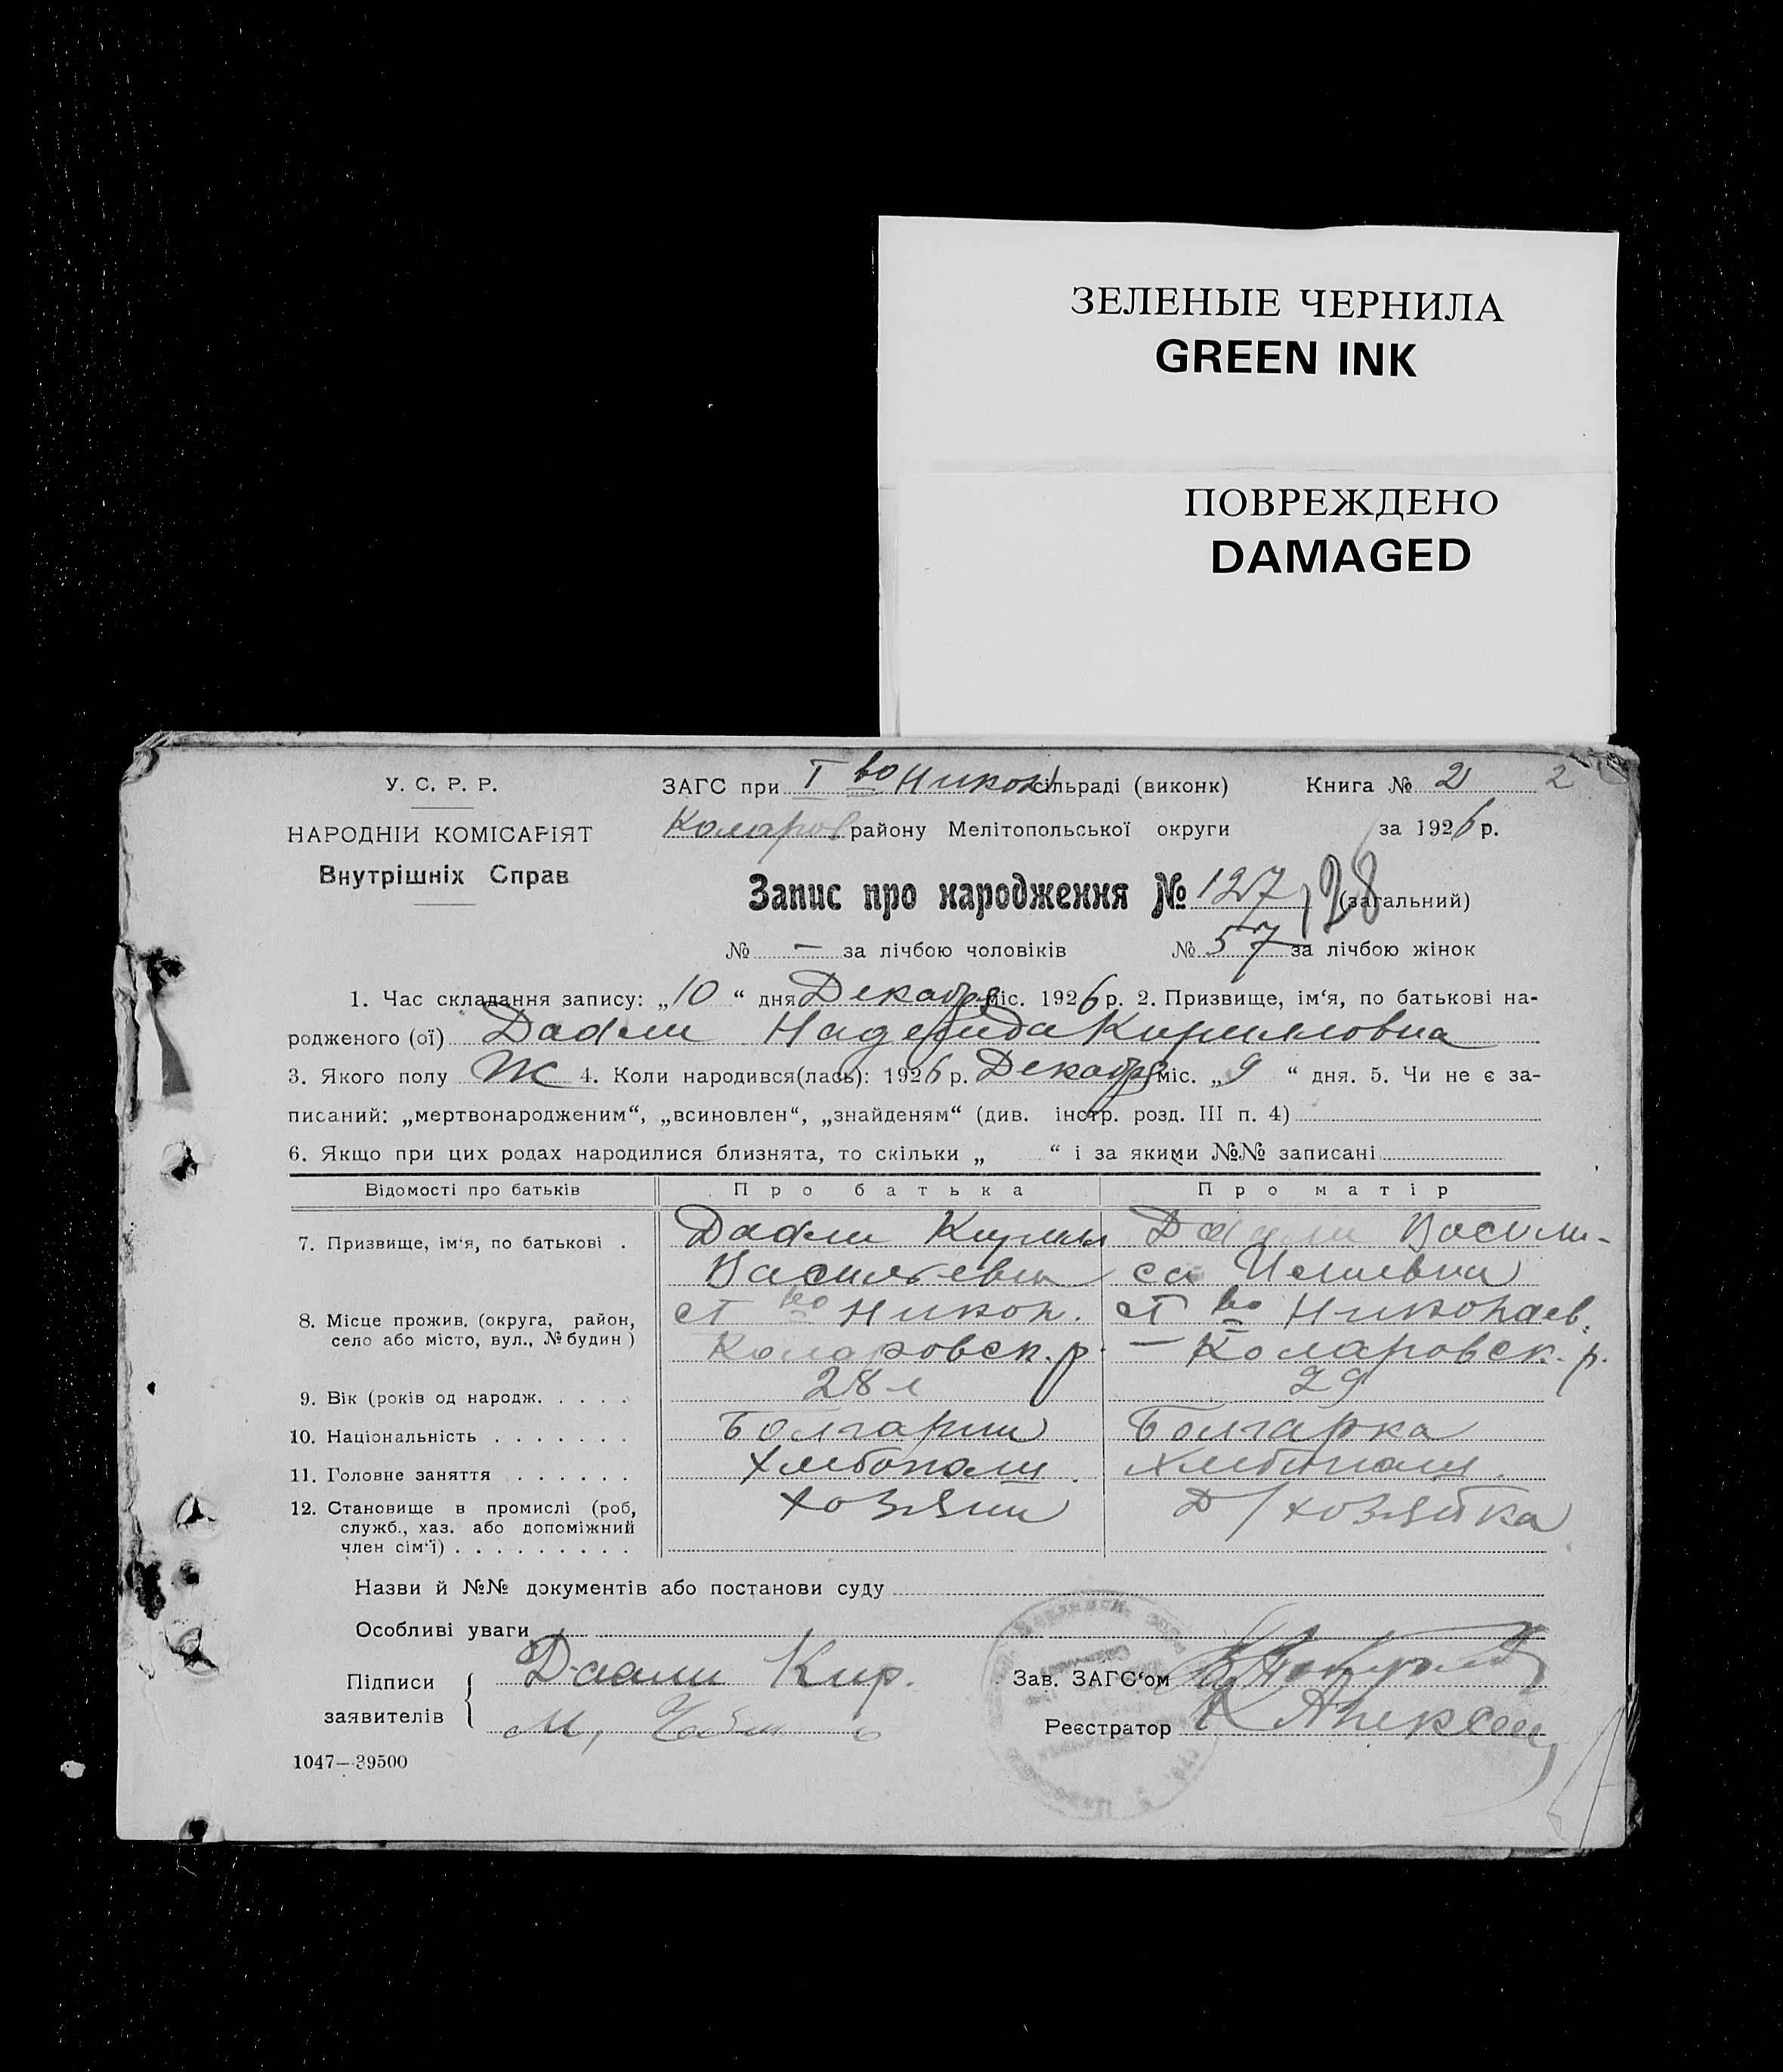 ЗЕЛЕНЫЕ ЧЕРНИЛА
GREEN INK
ПОВРЕЖДЕНО
DAMAGED
У. С. Р. Р.
НАРОДНІЙ КОМІСАРІЯТ
Внутрішніх Справ
ЗАГС при I во Никол сільраді (виконк) Книга № 2 2
Коларов району Мелітопольської округи за 1926 р.
Запис про народження № 127 128 (загальний)
№ — за лічбою чоловіків № 57 за лічбою жінок
1. Час складання запису: „10“ дня Декабря міс. 1926 р. 2. Призвище, ім‘я, по батькові на-
родженого (ої) Даали Надежда Кирилловна
3. Якого полу Ж 4. Коли народився(лась): 1926 р. Декабря міс. „9“ дня. 5. Чи не є за-
писаний: „мертвонародженим“, „всиновлен“, „знайденям“ (див. інстр. розд. III п. 4)
6. Якщо при цих родах народилися близнята, то скільки „ “ і за якими №№ записані
Відомості про батьків Про батька Про матір
7. Призвище, ім‘я, по батькові . Даали Кирилл Васильевич Даали Васили-
са
8. Місце прожив. (округа, район, село або місто, вул., № будин ) с I во Никол. Коларовск. р. с I во Николаев. — Коларовск. р.
9. Вік (років од народж. . . . . 28 л 29
10. Національність . . . . . . . Болгарин Болгарка
11. Головне заняття . . . . . . Хлебопаш. Хлебопаш.
12. Становище в промислі (роб, служб., хаз. або допоміжний член сім‘ї) . . . . . . . . . Хозяин Д/хозяйка
Назви й №№ документів або постанови суду
Особливі уваги
Підписи заявителів Даали Кир.
М,
Зав. ЗАГС‘ом
Реєстратор
1047—39500